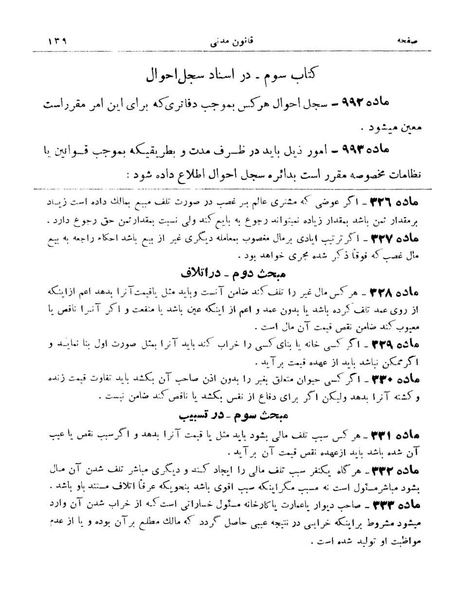 صفحه قانون مدنی ۱۳۹
کتاب سوم - در اسناد سجل احوال
ماده ۹۹۲ - سجل احوال هرکس بموجب دفاتریکه برای این امر مقرراست
معین میشود .
ماده ۹۹۳ - امور ذیل باید در ظرف مدت و بطریقیکه بموجب قوانین یا
نظامات مخصوصه مقرر است بدائره سجل احوال اطلاع داده شود :
ماده ۳۲۶ - اگر عوضی که مشتری عالم بر غصب در صورت تلف مبیع بمالك داده است زیاد
برمقدار ثمن باشد بمقدار زیاده نمیتواند رجوع به بایع کند ولی نسبت بمقدار ثمن حق رجوع دارد .
ماده ۳۲۷ - اگر ترتیب ایادی بر مال مغصوب بمعامله دیگری غیر از بیع باشد احکام راجعه به بیع
مال غصب که فوقاً ذکر شده مجری خواهد بود .
مبحث دوم - در اتلاف
ماده ۳۲۸ - هر کس مال غیر را تلف کند ضامن آنست وباید مثل یا قیمت آنرا بدهد اعم از اینکه
از روی عمد تلف کرده باشد یا بدون عمد و اعم از اینکه عین باشد یا منفعت و اگر آنرا ناقص یا
معیوب کند ضامن نقص قیمت آن مال است .
ماده ۳۲۹ - اگر کسی خانه یا بنای کسی را خراب کند باید آنرا بمثل صورت اول بنا نماید و
اگر ممکن نباشد باید از عهده قیمت برآید .
ماده ۳۳۰ - اگر کسی حیوان متعلق بغیر را بدون اذن صاحب آن بکشد باید تفاوت قیمت زنده
و کشته آنرا بدهد ولیکن اگر برای دفاع از نفس بکشد یا ناقص کند ضامن نیست .
مبحث سوم - در تسبیب
ماده ۳۳۱ - هر کس سبب تلف مالی بشود باید مثل یا قیمت آنرا بدهد و اگر سبب نقص یا عیب
آن شده باشد باید از عهده نقص قیمت آن برآید .
ماده ۳۳۲ - هر گاه یکنفر سبب تلف مالی را ایجاد کند و دیگری مباشر تلف شدن آن مال
بشود مباشر مسئول است نه مسبب مگر اینکه سبب اقوی باشد بنحویکه عرفاً اتلاف مستند باو باشد .
ماده ۳۳۳ - صاحب دیوار یاعمارت یاکارخانه مسئول خساراتی است که از خراب شدن آن وارد
میشود مشروط بر اینکه خرابی در نتیجه عیبی حاصل گردد که مالك مطلع بر آن بوده و یا از عدم
مواظبت او تولید شده است .